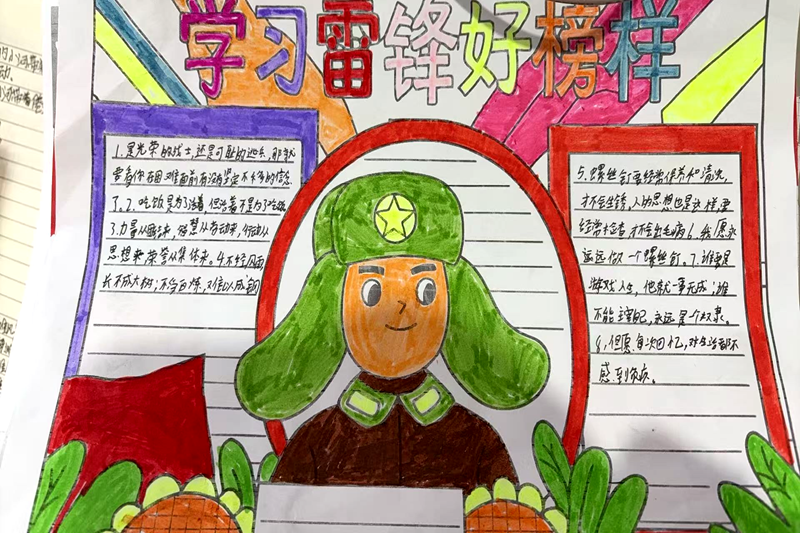 学习雷锋好榜样
1.是光荣的战士,还是可耻的逃兵,那就
要看你在困难面前有没有坚定不移的信念
了。2.吃饭是为了活着,但活着不是为了吃饭
3.力量从团结来,智慧从劳动来,行动从
思想来,荣誉从集体来。4.不经风雨,
长不成大树;不受百炼,难以成钢
5.螺丝钉要经常保养和清洗,
才不会生锈。人的思想也是这样,要
经常检查,才不会出毛病6.我愿永
远做一个螺丝钉。7.谁要是
游戏人生,他就一事无成;谁
不能主宰自己,永远是个奴隶。
8.但愿每次回忆,对生活都不
感到负疚。